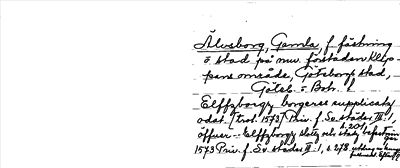 Älvsborg, Gamla, f fästning
o stad på nuv. förstaden Klip-
pens område, Göteborgs stad,
Göteb. o Boh. l
Elffzborgz borgeres supplicatz
odat. [trol. 1573] Priv. f. Sv. städer II:1,
s. 201
öffuer Elffzborgz slotz och stadz befestning
1573 Priv. f. Sv. städer II:1, s. 278